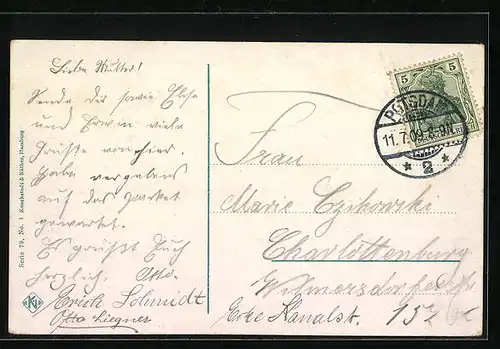 Liebe Mutter!
Sende Dir sowie Else
und Erwin viele
Grüße von hier.
Habe vergebens
auf das Packet
gewartet.
Es grüßt Euch
herzlich. Otto.
Erich Schmidt
Otto Liegner
Serie 79, No. 1 Knackstedt & Näther, Hamburg
5 5
POTSDAM
11.7.09.8-9N.
* 2 *
Frau
Marie Czikowski
Charlottenburg
Wilmersdorferstr
Ecke Kanalst. 152